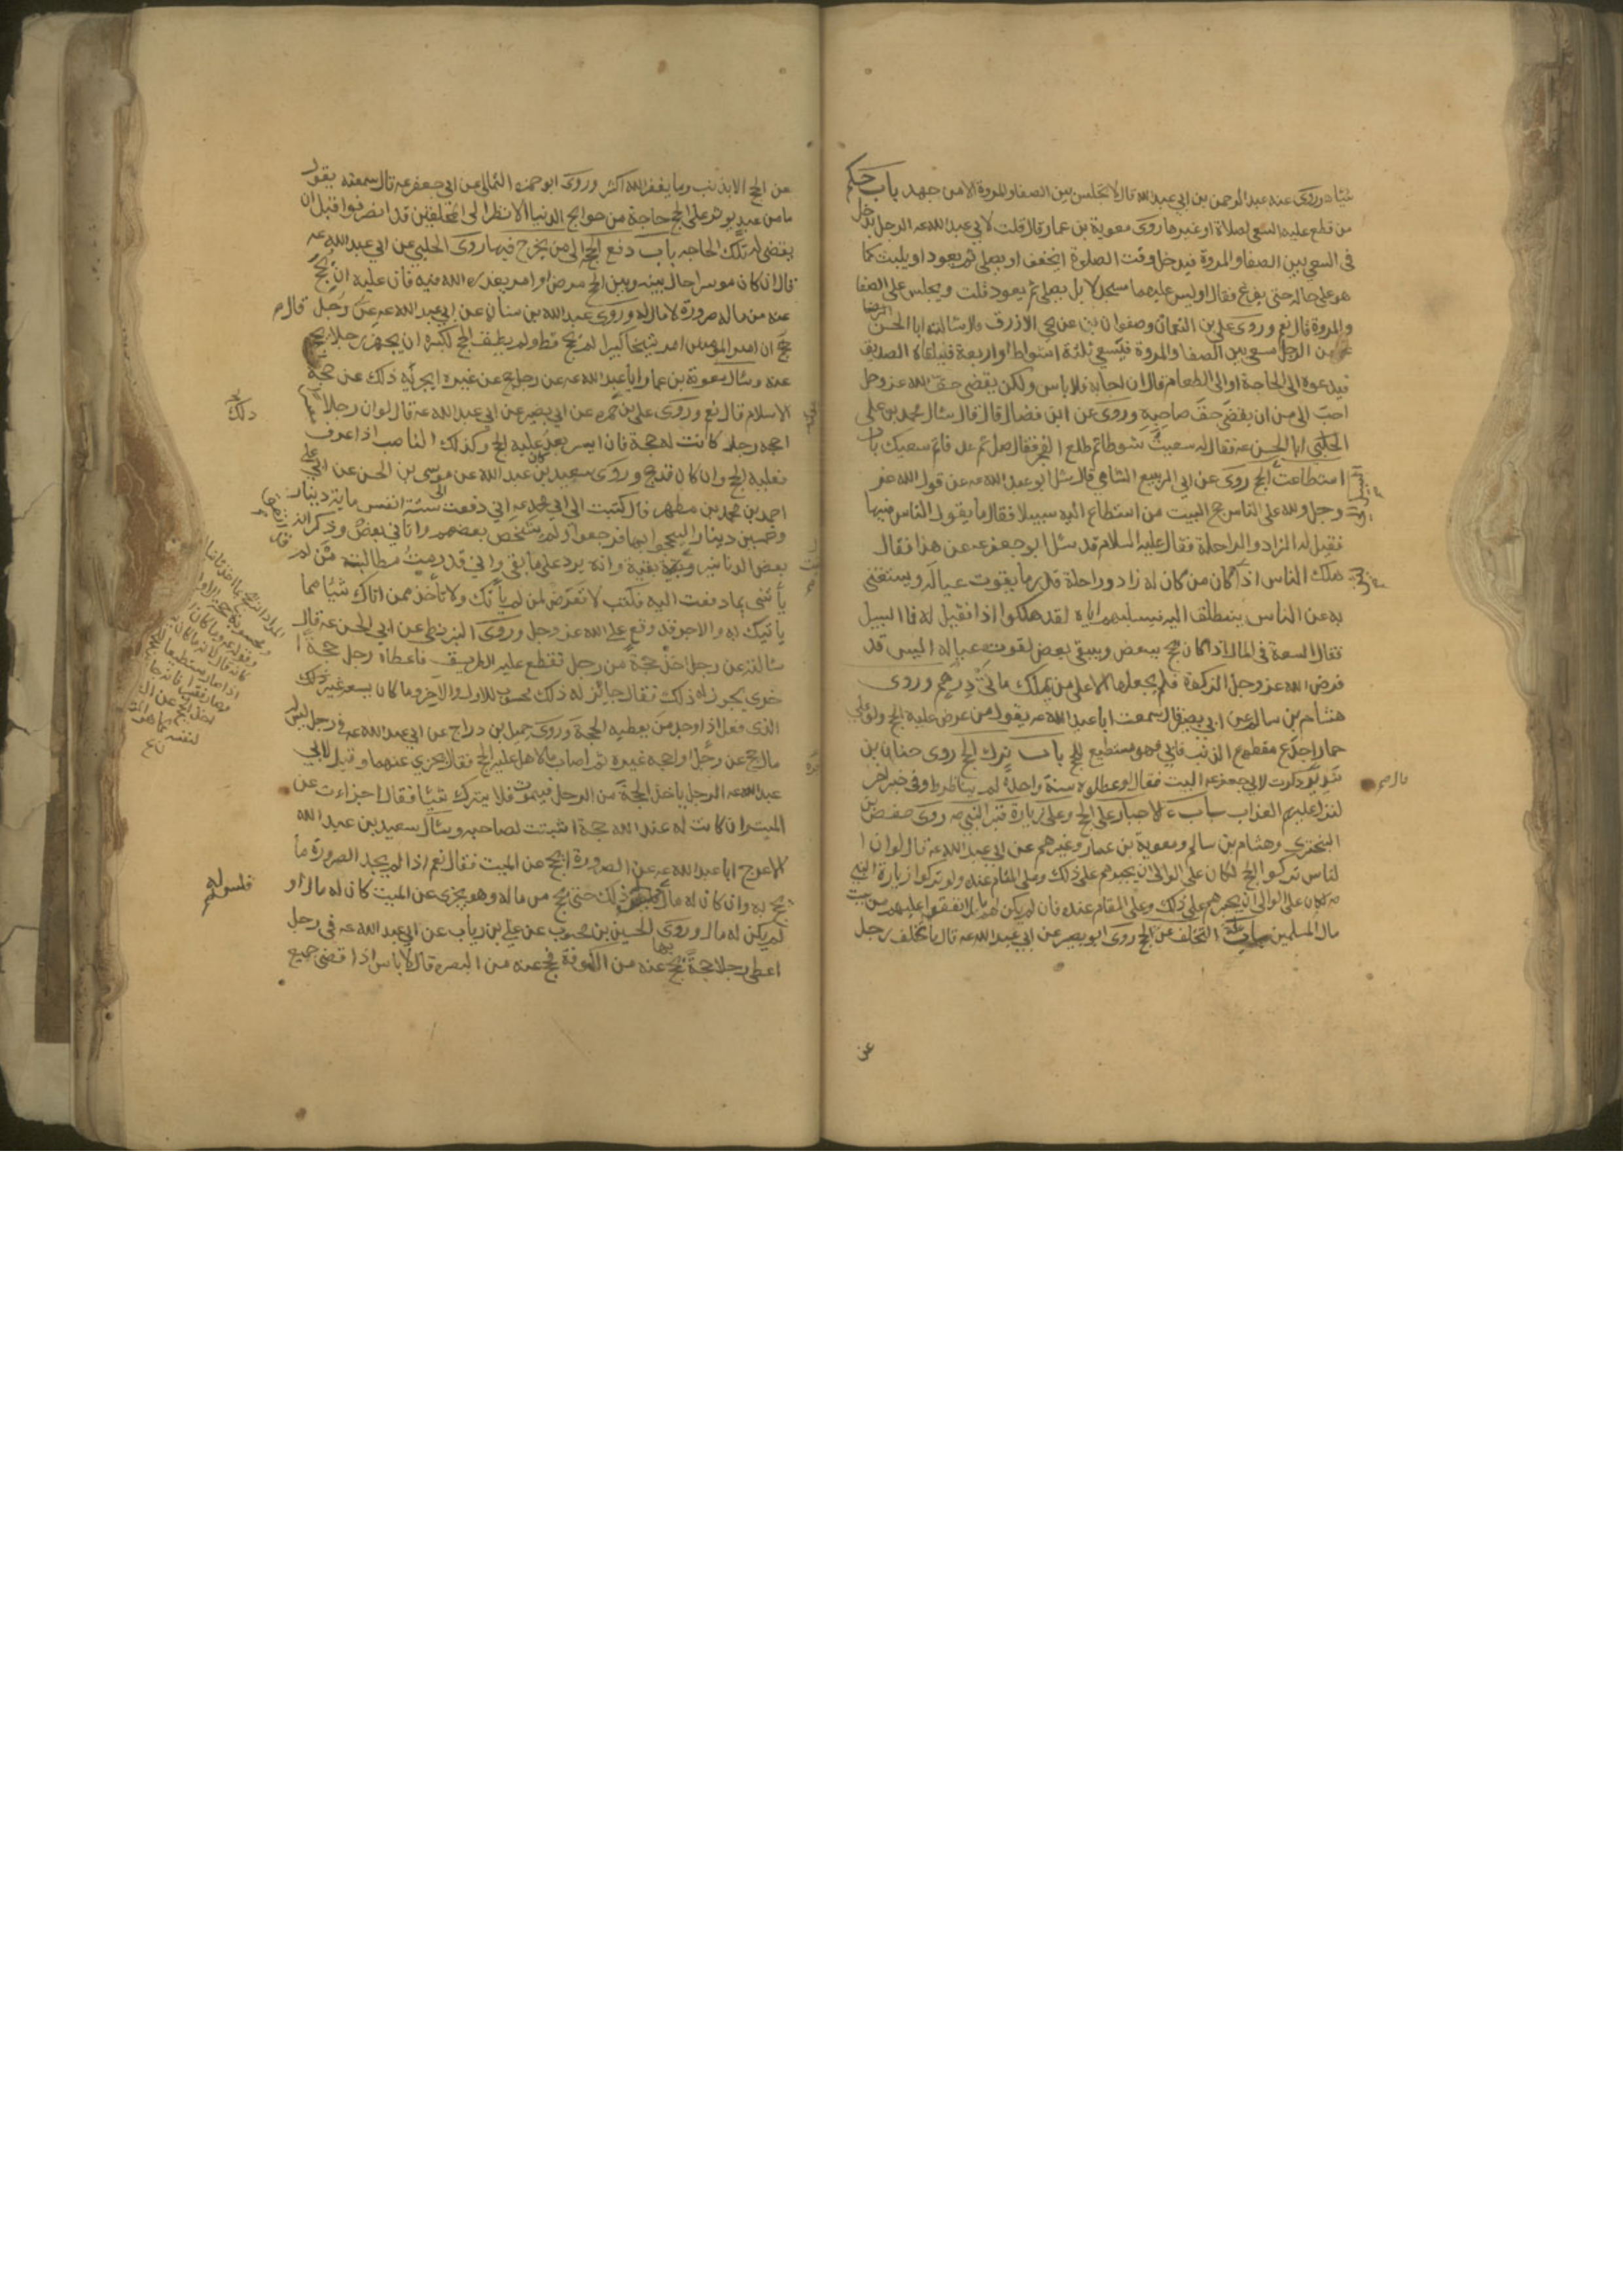 شيئا وروى عنه عبد الرحمن بن ابي عبد الله قال لا تجلس بين الصفا والمروة الا من جهد باب حكم
من قطع عليه السعي لصلاة او غيرها روى معوية بن عمار قال قلت لابي عبد الله عہ الرجل يدخل
في السعي بين الصفا والمروة فيدخل وقت الصلوة ايخفف او يصلي ثم يعود او يلبث كما
هو على حاله حتى يفرغ فقال اوليس عليهما مسجد لا بل يصلي ثم يعود قلت ويجلس على الصفا
والمروة قال نعم وروى علي بن النعمان وصفوان عن يحيى الازرق قال سالت ابا الحسن
عن الرجل يسعى بين الصفا والمروة فيسعى ثلثة اشواط او اربعة فيلقاه الصديق
فيدعوه الى الحاجة او الى الطعام قال ان اجابه فلا باس ولكن يقضي حق الله عز وجل
احب الى من ان يقضي حق صاحبه وروى عن ابن فضال قال قال سئال محمد بن علي
الحلبي ابا الحسن عہ فقال له سعيت شوطا ثم طلع الفجر فقال صل ثم عد فاتم سعيك باب
استطاعة الحج روى عن ابي الربيع الشامي قال سئل ابو عبد الله عہ عن قول الله عز
وجل ولله على الناس حج البيت من استطاع اليه سبيلا فقال ما يقول الناس فيها
فقيل له الزاد والراحلة فقال عليه السلام قد سئل ابو جعفر عہ عن هذا فقال
هلك الناس اذا كان من كان له زاد وراحلة قدر ما يقوت عياله ويستغني
به عن الناس ينطلق اليه فيسلبهم اياه لقد هلكوا اذا فقيل له فما السبيل
فقال السعة في المال اذا كان يحج ببعض ويبقي بعض لقوت عياله اليس قد
فرض الله عز وجل الزكوة فلم يجعلها الا على من يملك مأتي درهم وروى
هشام بن سالم عن ابي بصير قال سمعت ابا عبد الله عہ يقول من عرض عليه الحج ولو على
حمار اجدع مقطوع الذنب فابى فهو مستطيع للحج باب ترك الحج روى حنان بن
سدير ذكرت لابي جعفر عہ البيت فقال لو عطلوه سنة واحدة لم يناظروا وفي خبر اخر
لنزل عليهم العذاب باب الاجبار على الحج وعلى زيارة قبر النبي صہ روى حفص بن
البختري وهشام بن سالم ومعوية بن عمار وغيرهم عن ابي عبد الله عہ قال لو ان ا
لناس تركوا الحج لكان على الوالي ان يجبرهم على ذلك وعلى المقام عنده ولو تركوا زيارة النبي
صہ لكان على الوالي ان يجبرهم على ذلك وعلى المقام عنده فان لم يكن لهم مال انفق عليهم من بيت
مال المسلمين باب علة التخلف عن الحج روى ابو بصير عن ابي عبد الله عہ قال ما تخلف رجل
عن
عن الحج الا بذنب وما يغفر الله اكثر وروى ابو حمزة الثمالي عن ابي جعفر عہ قال سمعته يقول
ما من عبد يوثر على الحج حاجة من حوايج الدنيا الا نظر الى المحلقين قد انصرفوا قبل ان
يقضى له تلك الحاجة باب دفع الحج الى من يخرج فيها روى الحلبي عن ابي عبد الله عہ
قال ان كان موسرا حال بينه وبين الحج مرض او امر يعذره الله فيه فان عليه ان يحج
عنه من ماله صرورة لا مال له وروى عبد الله بن سنان عن ابي عبد الله عہ
ان امير المؤمنين امر شيخا كبيرا لم يحج قط ولم يطق الحج لكبره ان يجهز رجلا يحج
عنه وسئال معوية بن عمار ابا عبد الله عہ عن رجل حج عن غيره ايجزيه ذلك عن حجة
الاسلام قال نعم وروى علي بن ابي حمزة عن ابي بصير عن ابي عبد الله عہ قال لو ان رجلا
احجه رجلا كانت له حجة فان ايسر بعد فعليه الحج وكذلك الناصب اذا عرف
فعليه الحج وان كان قد حج وروى سعد بن عبد الله عن موسى بن الحسن عن ابي علي
احمد بن محمد بن مطهر قال كتبت الى ابي محمد عہ اني دفعت الى ستة انفس ماية دينار
وخمسين دينارا ليحجوا بها فرجعوا ولم يشخص بعضهم واتاني بعض وذكر انه
بعض الدنانير وبقيت بقية وانه يرد علي ما بقي واني قد رمت مطالبة من لم
يأتني بما دفعت اليه فكتب لا تعرض لمن لم يأتك ولا تأخذ ممن اتاك شيئا مما
يأتيك به والاجر قد وقع على الله عز وجل وروى البزنطي عن ابي الحسن عہ قال
سالته عن رجل اخذ حجة من رجل فقطع عليه الطريق فاعطاه رجل حجة ا
خرى يجوز له ذلك فقال جائز له ذلك محسوب للاول والاخر وما كان يسعه غير ذلك
الذي فعل اذا وجد من يعطيه الحجة وروى جميل بن دراج عن ابي عبد الله عہ في رجل ليس
مال حج عن رجل او احجه غيره ثم اصاب مالا هل عليه الحج فقال يجزي عنهما وقيل لابي
عبد الله عہ الرجل ياخذ الحجة من الرجل فيموت فلا يترك شيئا فقال اجزاءت عن
الميت وان كانت له عند الله حجة اثبتت لصاحبه وسئال سعيد بن عبد الله
الاعرج ابا عبد الله عہ عن الصرورة ايحج عن الميت فقال نعم اذا لم يجد الصرورة ما
يحج به وان كان له مال فليس له ذلك حتى يحج من ماله وهو يجزي عن الميت كان له مال او
لم يكن له مال وروى الحسن بن محبوب عن علي بن رياب عن ابي عبد الله عہ في رجل
اعطى رجلا حجة يحج بها عنه من الكوفة فحج عنه من البصرة قال لا باس اذا قضى جميع
ذلك
فليس له